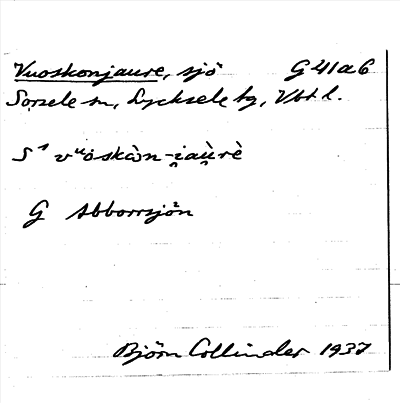 Vuoskonjaure, sjö G 41a6
Sorsele sn, Lycksele tg, Vbt l.
S¹ vᵘöskàn-i̯au̯rè
G Abborrsjön
Björn Collinder 1937